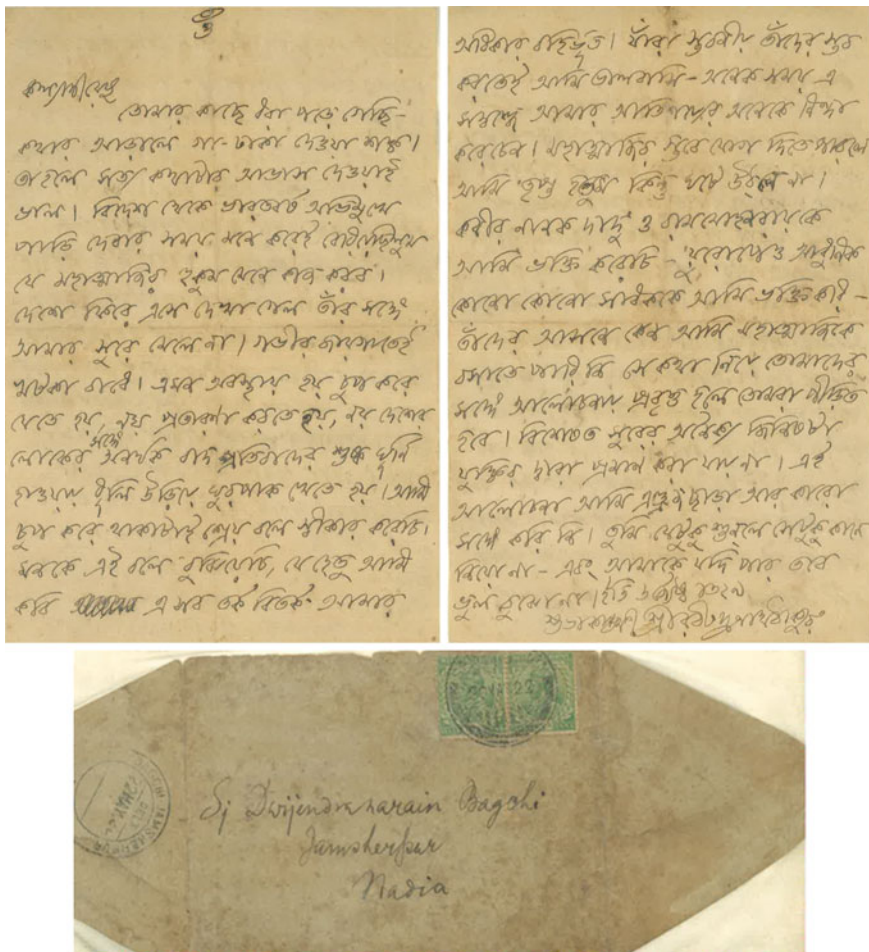 ওঁ
কল্যাণীয়েষু
তোমার কাছে ধরা পড়ে গেছি –
কথার আড়ালে গা-ঢাকা দেওয়া শক্ত।
তাহলে সত্য কথাটার আভাস দেওয়াই
ভাল। বিদেশ থেকে ভারতবর্ষ অভিমুখে
পাড়ি দেবার সময় মনে করেই বেরিয়েছিলুম
যে মহাত্মাজির হুকুম মেনে কাজ করব।
দেশে ফিরে এসে দেখা গেল তাঁর সঙ্গে
আমার সুরে মেলে না। গভীর জায়গাতেই
খটকা বাধে। এমন অবস্থায় হয় চুপ করে
যেতে হয়, নয় প্রতারণা করতে হয়, নয় দেশের
লোকের সঙ্গে অনর্থক বাদ প্রতিবাদের শুষ্ক ঘূর্ণি
হাওয়ায় ধূলি উড়িয়ে ঘুরপাক খেতে হয়। আমি
চুপ করে থাকাটাই শ্রেয় বলে স্বীকার করেচি।
মনকে এই বলে বুঝিয়েচি, যেহেতু আমি
কবি এ সব তর্ক বিতর্ক আমার
অধিকার বহির্ভূত। যাঁরা স্তবনীয় তাঁদের স্তব
করতেই আমি ভালবাসি – অনেক সময় এ
সম্বন্ধে আমার আতিশয্যের অনেকে নিন্দা
করেচেন। মহাত্মাজির স্তবে যোগ দিতে পারলে
আমি তৃপ্ত হতুম কিন্তু ঘটে উঠল না।
কবীর নানক দাদু ও রামমোহনরায়কে
আমি ভক্তি করেচি – য়ুরোপেও আধুনিক
কোনো কোনো সাধককে আমি ভক্তি করি –
তাঁদের আসনে কেন আমি মহাত্মাজিকে
বসাতে পারি নি সে কথা নিয়ে তোমাদের
সঙ্গে আলোচনায় প্রবৃত্ত হলে তোমরা পীড়িত
হবে। বিশেষত সুরের অনৈক্য জিনিষটা
যুক্তির দ্বারা প্রমাণ করা যায় না। এই
আলোচনা আমি এণ্ড্রুজ ছাড়া আর কারো
সঙ্গে করি নি। তুমি যেটুকু শুনলে সেটুকু কানে
নিয়ো না – এবং আমাকে যদি পার তবে
ভুল বুঝো না। ইতি জ্যৈষ্ঠ ১৩২৯
শুভাকাঙ্ক্ষী শ্রীরবীন্দ্রনাথ ঠাকুর
Sj Dwijendranarain Bagchi
Jamsherpur
Nadia